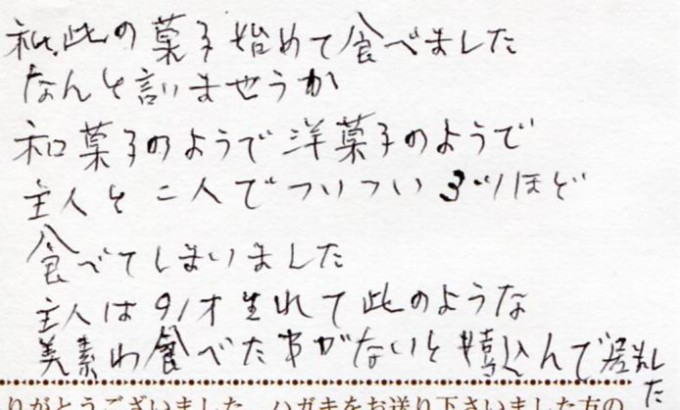 私此の菓子始めて食べました
なんと言いませうか
和菓子のようで洋菓子のようで
主人と二人でついつい3ツほど
食べてしまいました
主人は91才生れて此のような
美素わ食べた事がないと喜込んで居ました
りがとうございました ハガキをお送り下さいました方の